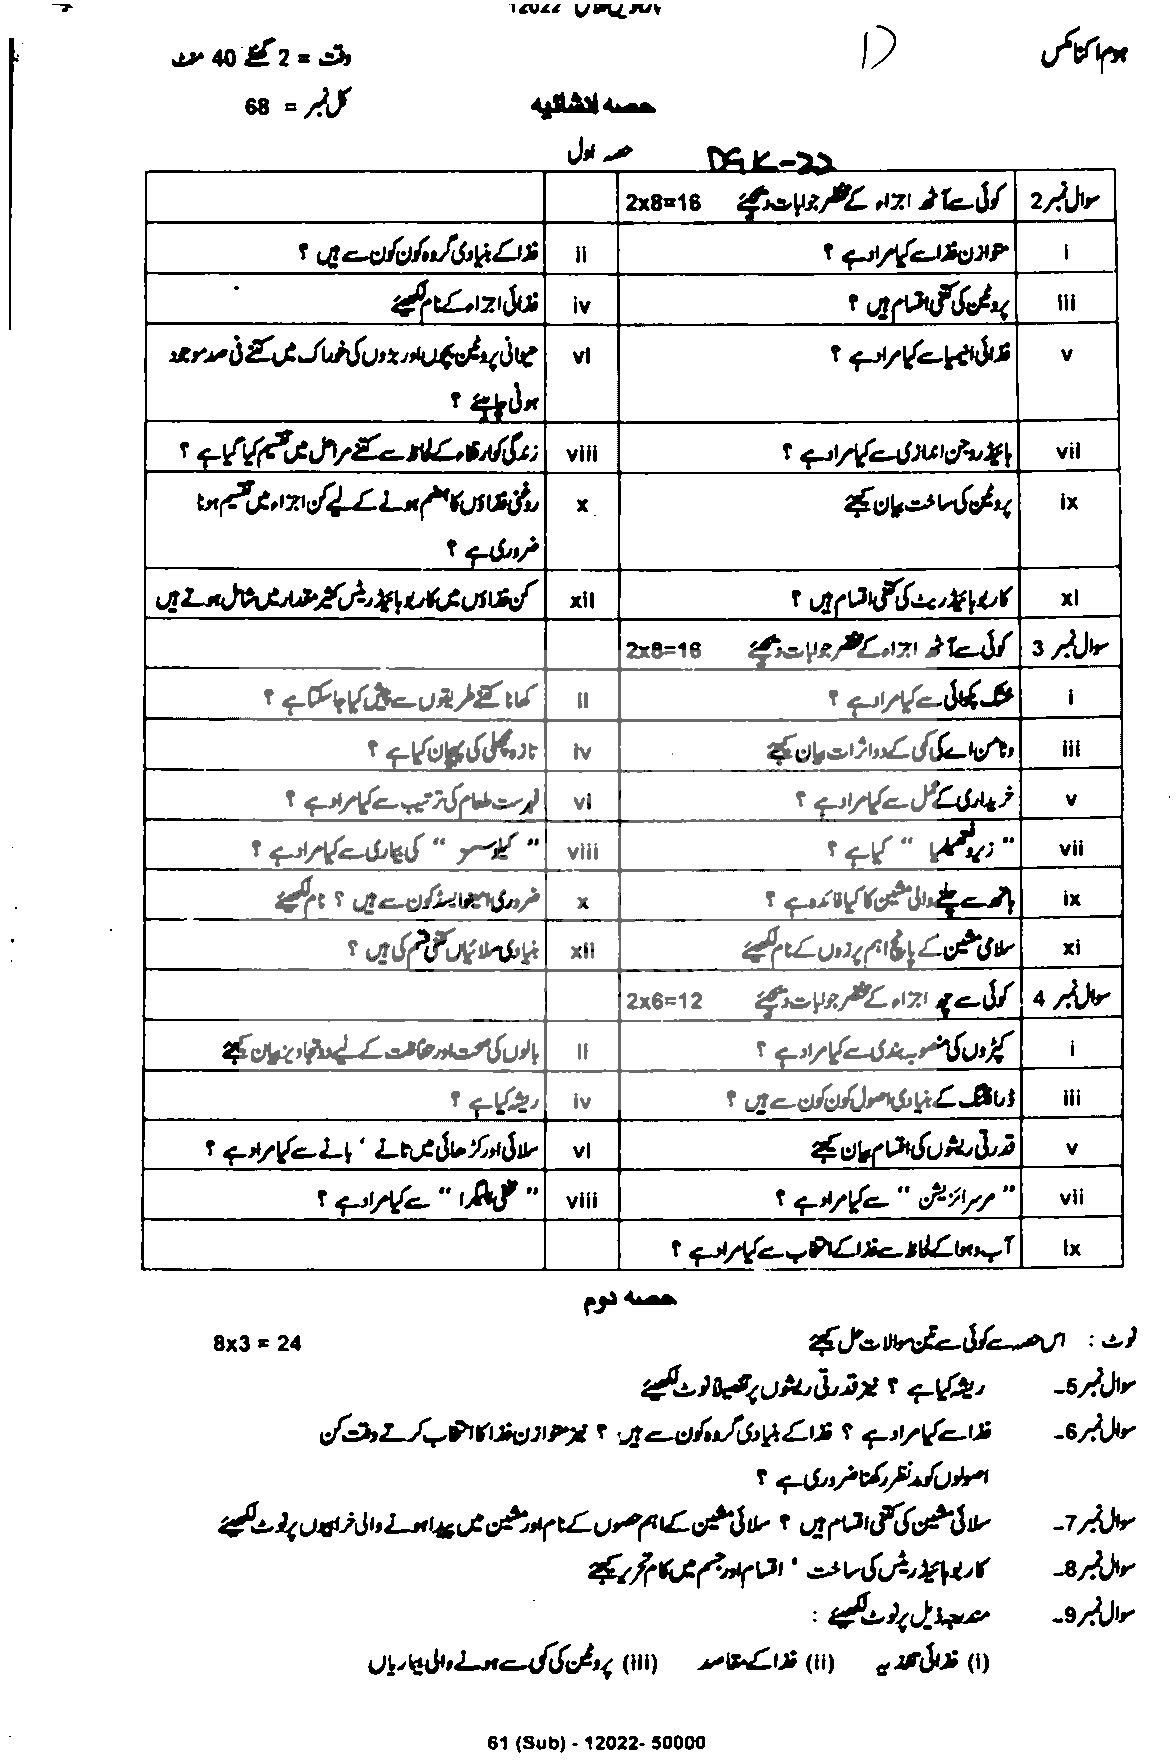 12022
ہوم اکنامکس
1)
وقت = 2 گھنٹے 40 منٹ
حصہ انشائیہ
کل نمبر = 68
حصہ اول
DGK-22
سوال نمبر 2 کوئی سے آٹھ اجزاء کے مختصر جوابات دیجئے 2x8=16
i متوازن غذا سے کیا مراد ہے ؟ ii غذا کے بنیادی گروہ کون کون سے ہیں ؟
iii پروٹین کی کتنی اقسام ہیں ؟ iv غذائی اجزاء کے نام لکھیئے
v غذائی اشیا سے کیا مراد ہے ؟ vi حیوانی پروٹین بچوں اور بڑوں کی خوراک میں کتنے فی صد موجود
ہونی چاہیئے ؟
vii ہائیڈروجن اندازی سے کیا مراد ہے ؟ viii زندگی کو ارتقاء کے لحاظ سے کتنے مراحل میں تقسیم کیا گیا ہے ؟
ix پروٹین کی ساخت بیان کیجئے x روغنی غذاؤں کا ہضم ہونے کے لیے کن اجزاء میں تقسیم ہونا
ضروری ہے ؟
xi کاربوہائیڈریٹ کی کتنی اقسام ہیں ؟ xii کن غذاؤں میں کاربوہائیڈریٹس کثیر مقدار میں شامل ہوتے ہیں
سوال نمبر 3 کوئی سے آٹھ اجزاء کے مختصر جوابات دیجئے 2x8=16
i خشک پکوائی سے کیا مراد ہے ؟ ii کھانا کتنے طریقوں سے پیش کیا جا سکتا ہے ؟
iii وٹامن اے کی کمی کے دو اثرات بیان کیجئے iv تازہ مچھلی کی پہچان کیا ہے ؟
v خریداری کے عمل سے کیا مراد ہے ؟ vi فہرست طعام کی ترتیب سے کیا مراد ہے ؟
vii " زیروفتھیلمیا " کیا ہے ؟ viii " کیلوسس " کی بیماری سے کیا مراد ہے ؟
ix ہاتھ سے چلنے والی مشین کا کیا فائدہ ہے ؟ x ضروری امینو ایسڈ کون سے ہیں ؟ نام لکھیئے
xi سلائی مشین کے پانچ اہم پرزوں کے نام لکھیئے xii بنیادی سلائیاں کتنی قسم کی ہیں ؟
سوال نمبر 4 کوئی سے چھ اجزاء کے مختصر جوابات دیجئے 2x6=12
i کپڑوں کی منصوبہ بندی سے کیا مراد ہے ؟ ii بالوں کی صحت اور حفاظت کے لیے دو تجاویز بیان کیجئے
iii ڈرافٹنگ کے بنیادی اصول کون کون سے ہیں ؟ iv ریشہ کیا ہے ؟
v قدرتی ریشوں کی اقسام بیان کیجئے vi سلائی اور کڑھائی میں تانے ' بانے سے کیا مراد ہے ؟
vii " مرسرائزیشن " سے کیا مراد ہے ؟ viii " سے کیا مراد ہے ؟
ix آب و ہوا کے لحاظ سے غذا کے انتخاب سے کیا مراد ہے ؟
حصہ دوم
نوٹ : اس حصہ سے کوئی سے تین سوالات حل کیجئے 8x3 = 24
سوال نمبر 5۔ ریشہ کیا ہے ؟ نیز قدرتی ریشوں پر تفصیلاً نوٹ لکھیئے
سوال نمبر 6۔ غذا سے کیا مراد ہے ؟ غذا کے بنیادی گروہ کون سے ہیں ؟ نیز متوازن غذا کا انتخاب کرتے وقت کن
اصولوں کو مدنظر رکھنا ضروری ہے ؟
سوال نمبر 7۔ سلائی مشین کی کتنی اقسام ہیں ؟ سلائی مشین کے اہم حصوں کے نام اور مشین میں پیدا ہونے والی خرابیوں پر نوٹ لکھیئے
سوال نمبر 8۔ کاربوہائیڈریٹس کی ساخت ' اقسام اور جسم میں کام تحریر کیجئے
سوال نمبر 9۔ مندرجہ ذیل پر نوٹ لکھیئے :
(i) غذائی تغذیہ (ii) غذا کے مقاصد (iii) پروٹین کی کمی سے ہونے والی بیماریاں
61 (Sub) - 12022- 50000